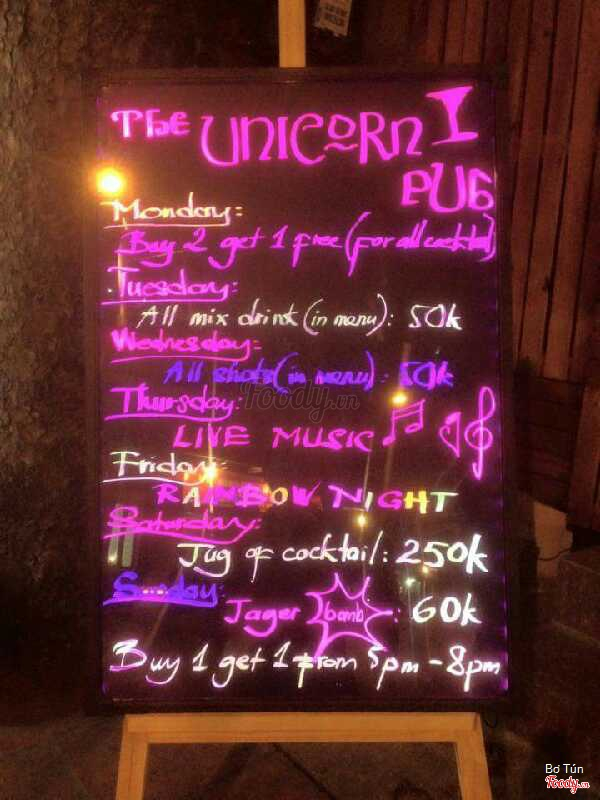 The UNICORN
PUB
Monday:
Buy 2 get 1 free (for all cocktail)
Tuesday:
All mix drink (in menu): 50k
Wednesday:
All shots (in menu): 50k
Thursday:
LIVE MUSIC
Friday:
RAINBOW NIGHT
Saturday:
Jug of cocktail: 250k
Sunday:
Jager bomb: 60k
Buy 1 get 1 from 5pm - 8pm
Foody.vn
Bơ Tún
Foody.vn